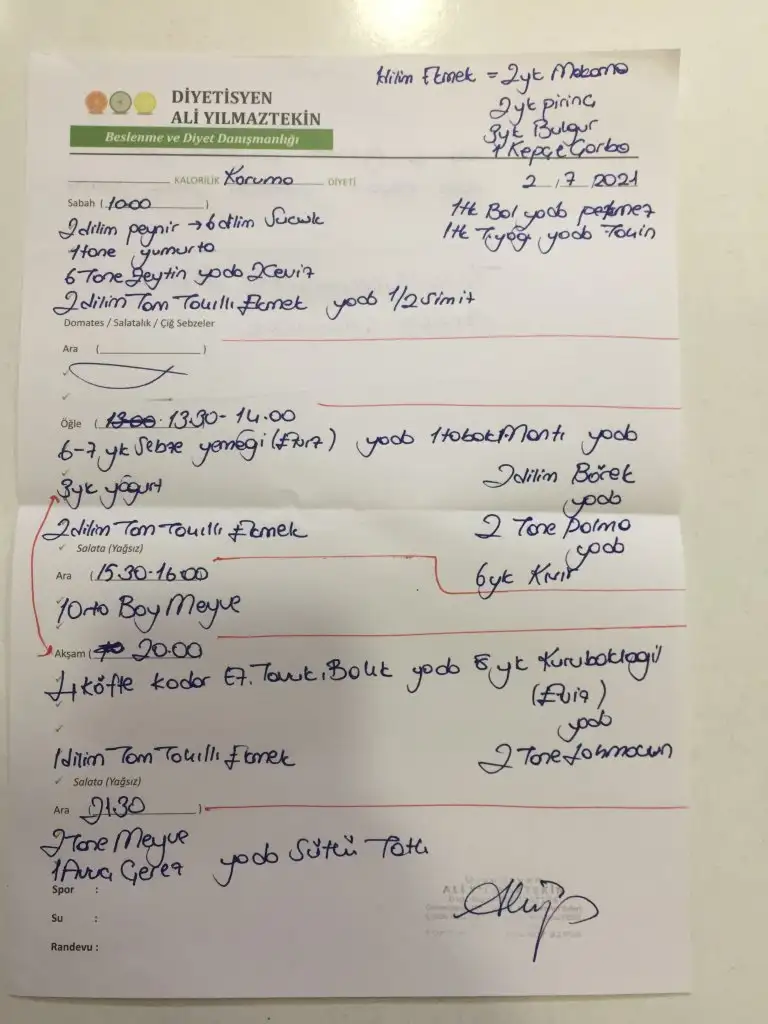 DİYETİSYEN
ALİ YILMAZTEKİN
Beslenme ve Diyet Danışmanlığı
1dilim Ekmek = 2yk Makarna
2yk pirinç
3yk Bulgur
1 Kepçe Çorba
KALORİLİK Koruma DİYETİ
2.7.2021
Sabah (10.00)
1tk Bal yada pekmez
1tk T.yağı yada Tahin
2dilim peynir → 6 dilim Sucuk
1tane yumurta
6 Tane Zeytin yada 2Ceviz
2dilim Tam Tahıllı Ekmek yada 1/2 simit
Domates / Salatalık / Çiğ Sebzeler
Ara ( )
Öğle ( 13.00 13.30-14.00
6-7 yk Sebze yemeği (Evia) yada 1tabak Mantı yada
3yk yoğurt
2dilim Börek
yada
2dilim Tam Tahıllı Ekmek
2 Tane Dolma
yada
Salata (Yağsız)
Ara (15.30-16.00
6yk Kısır
1Orta Boy Meyve
Akşam ( 20.00
4 köfte kadar Et, Tavuk, Balık yada 8 yk Kurubaklagil
(Evia)
yada
1dilim Tam Tahıllı Ekmek
2 Tane Lahmacun
Salata (Yağsız)
Ara (21.30)
2tane Meyve
1Avuç Çerez yada Sütlü Tatlı
Spor :
Su :
Randevu :